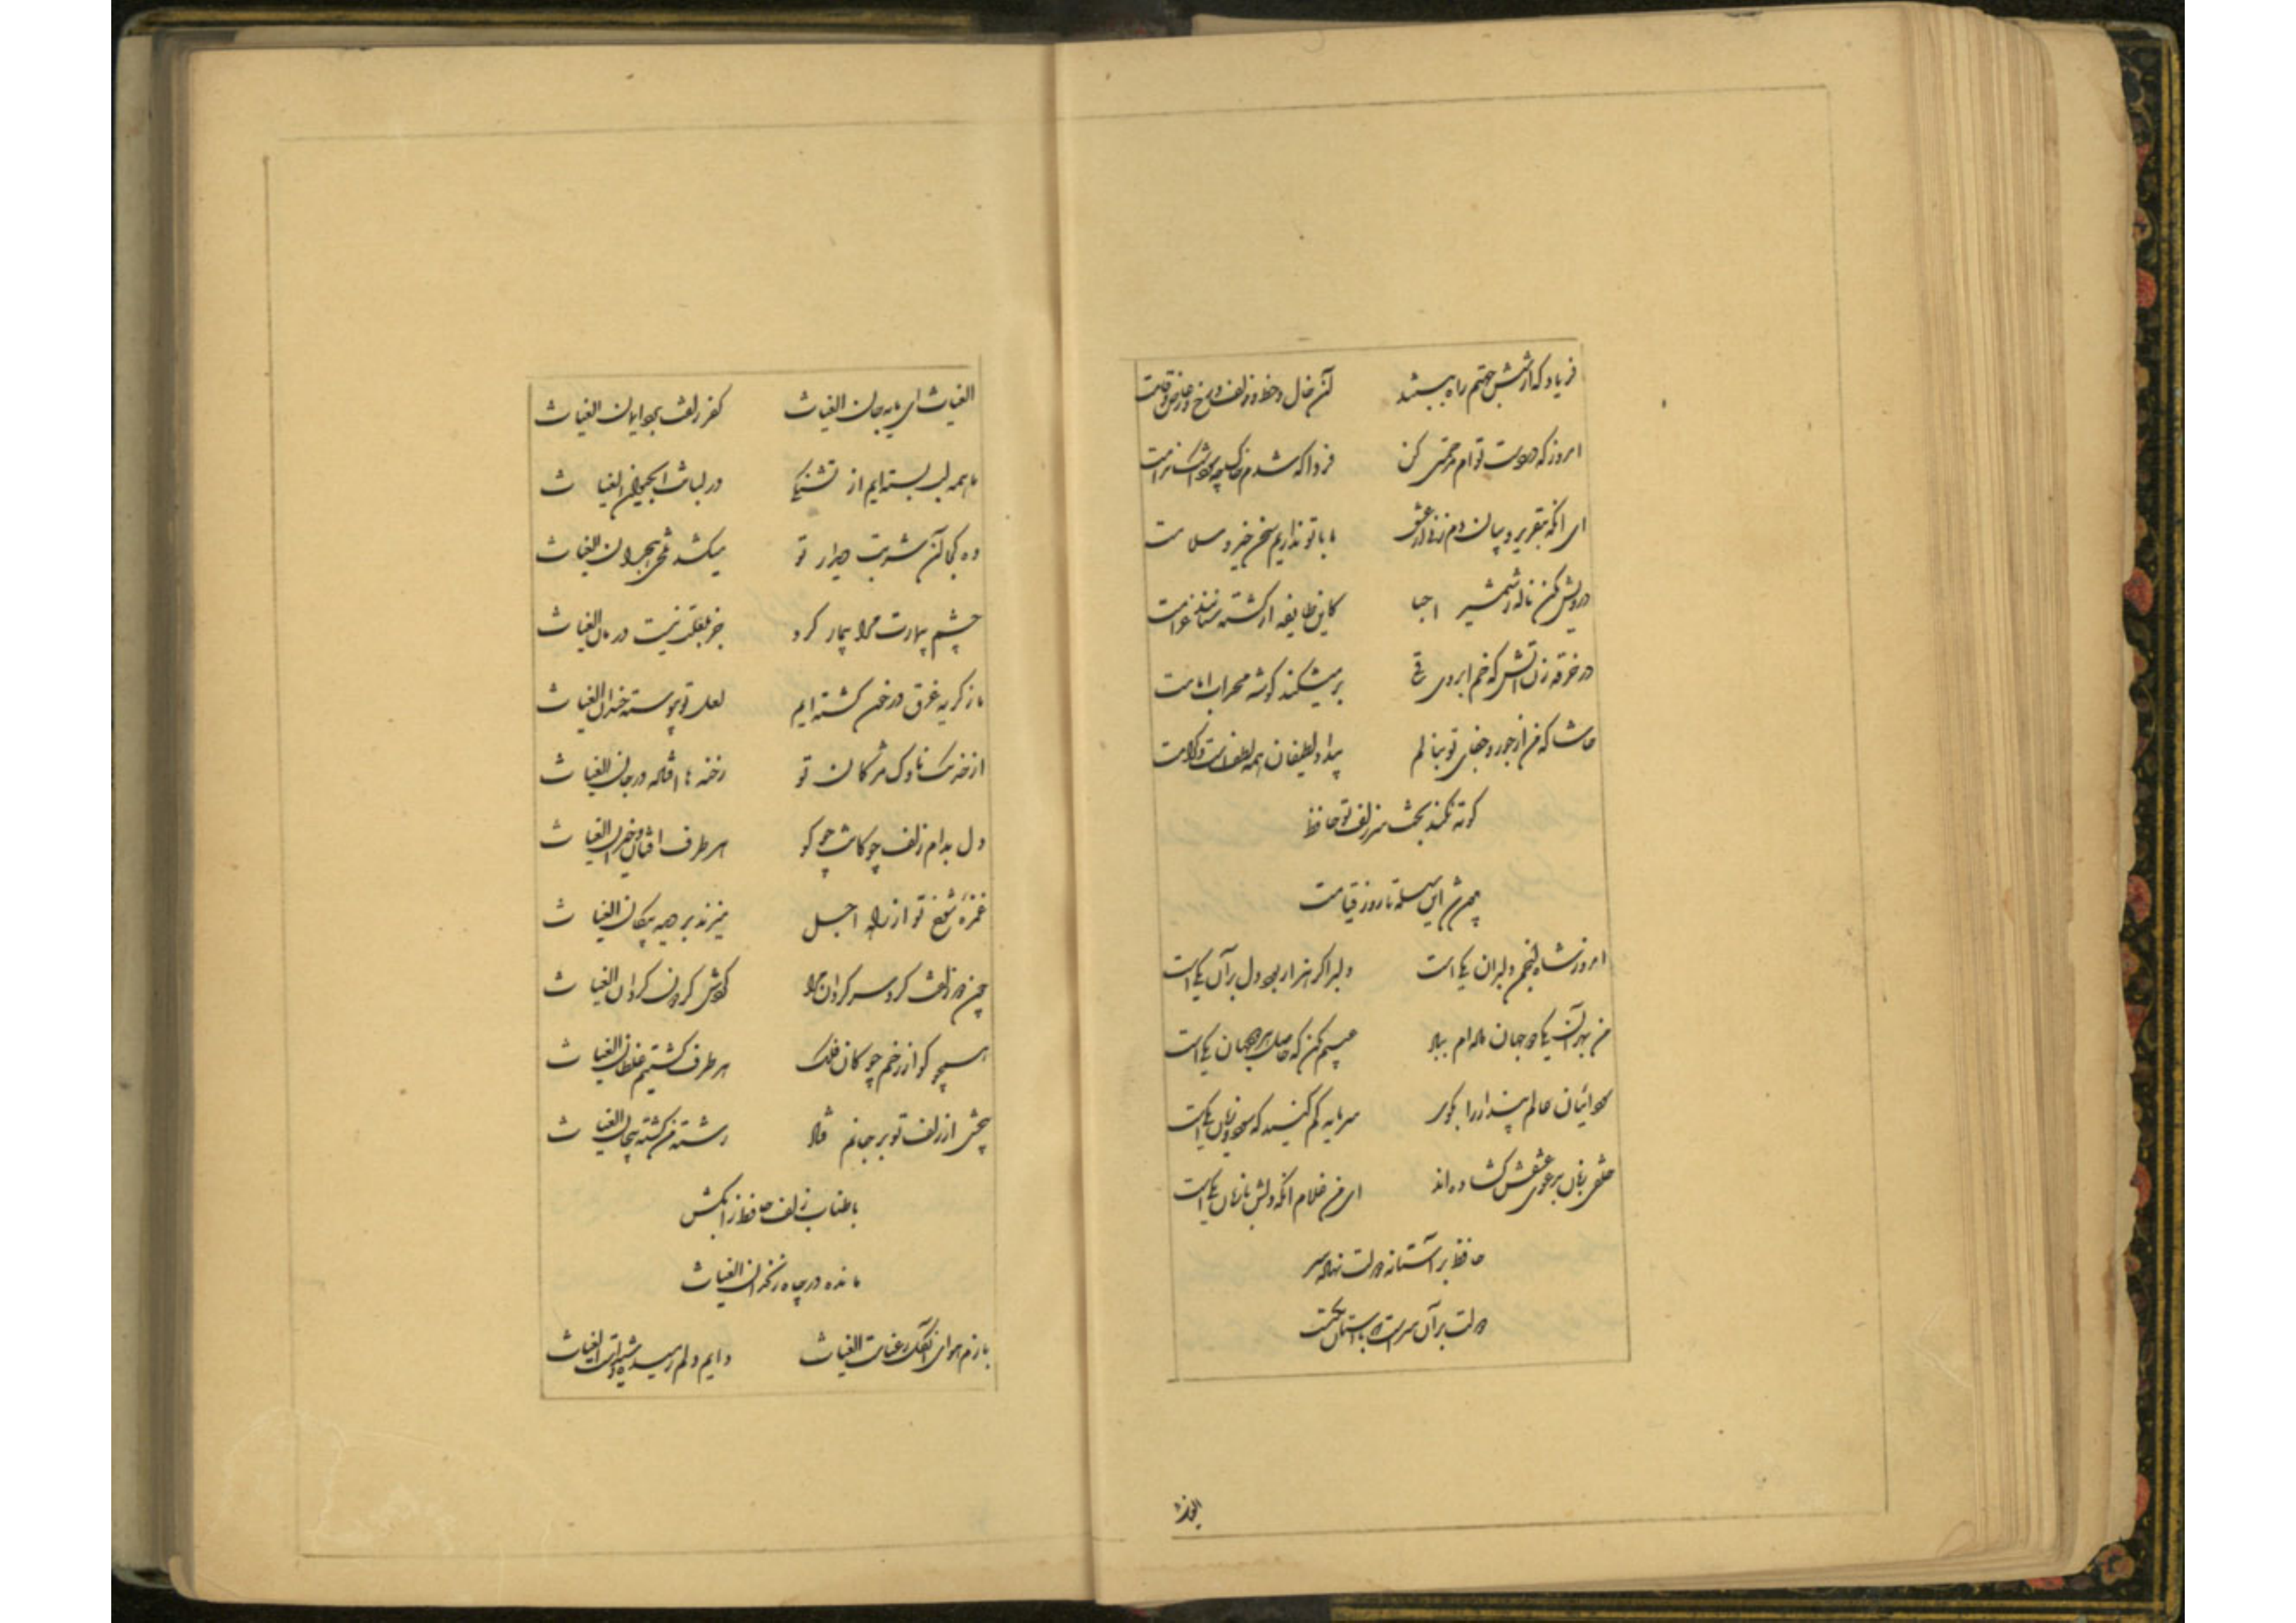 فریاد که از شش جهتم راه ببستند آن خال و خط و زلف و رخ و عارض و قامت
امروز که در دست توام مرحمتی کن فردا که شدم خاک چه سود اشک ندامت
ای آنکه بتقریر و بیان دم زنی از عشق ما با تو نداریم سخن خیر و سلامت
درویش مکن ناله ز شمشیر احبا کاین طایفه از کشته ستانند غرامت
در خرقه زن آتش که خم ابروی ساقی بر میشکند گوشه محراب امامت
حاشا که من از جور و جفای تو بنالم بیداد لطیفان همه لطفست و کرامت
کوته نکند بحث سر زلف تو حافظ
پیوسته شد این سلسله تا روز قیامت
امروز شاه انجمن دلبران یکیست دلبر اگر هزار بود دل بر آن یکیست
من بهر آن یکی دو جهان داده ام بباد عیبم مکن که حاصل هر دو جهان یکیست
سودائیان عالم پندار را بگوی سرمایه کم کنید که سود و زیان یکیست
خلقی زبان بدعوی عشقش گشاده اند ای من غلام آنکه دلش با زبان یکیست
حافظ بر آستانه دولت نهاده سر
دولت در آن سرست که با آستان یکیست
الغیاث
الغیاث ای مایه جان الغیاث کفر زلفت برد ایمان الغیاث
ما همه لب بسته ایم از تشنگی در لبانت آب حیوان الغیاث
وه کجا آن شربت دیدار تو میکشد تلخی هجران الغیاث
چشم بیمارت مرا بیمار کرد جز لبت نیست درمان الغیاث
ما ز گریه غرق در خون گشته ایم لعل تو پیوسته خندان الغیاث
از خدنگ ناوک مژگان تو رخنه ها افتاده در جان الغیاث
دل بدام زلف چوگانت چو گو هر طرف افتان و خیزان الغیاث
غمزه شوخ تو از راه اجل میزند بر دیده پیکان الغیاث
چون زلفت کرد سرگردان مرا گردش گردون گردان الغیاث
همچو گو از زخم چوگان فلک هر طرف گشتیم غلطان الغیاث
پیچش از زلف تو بر جانم فتاد رشته من گشته پیچان الغیاث
با طناب زلف حافظ را بکش
مانده در چاه زنخدان الغیاث
بازم هوای آن گل رعناست الغیاث دایم دلم رمیده و شیداست الغیاث